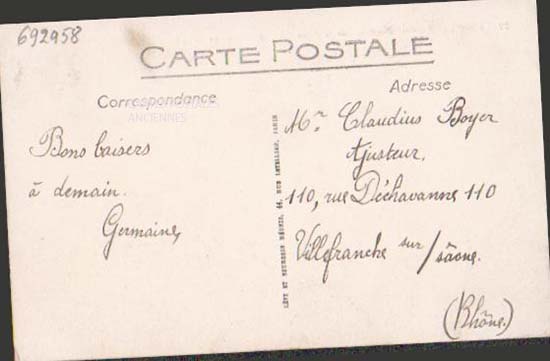 692958
CARTE POSTALE
Correspondance
Adresse
ANCIENNES
Bons baisers
à demain.
Germaine
Mr Claudius Boyer
Ajusteur.
110, rue Déchavanne 110
Villefranche sur/saône.
(Rhône.)
LÉVY ET NEURDEIN RÉUNIS, 44, RUE LETELLIER, PARIS